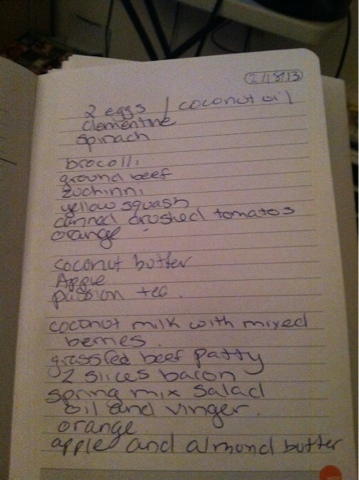 2/18/13
2 eggs / coconut oil
clementine
spinach
brocolli
ground beef
zuchinni
yellow squash
canned crushed tomatos
orange
coconut butter
Apple
passion tea.
coconut milk with mixed
berries.
grassfed beef patty
2 slices bacon
spring mix salad
oil and vinger.
orange
apple and almond butter